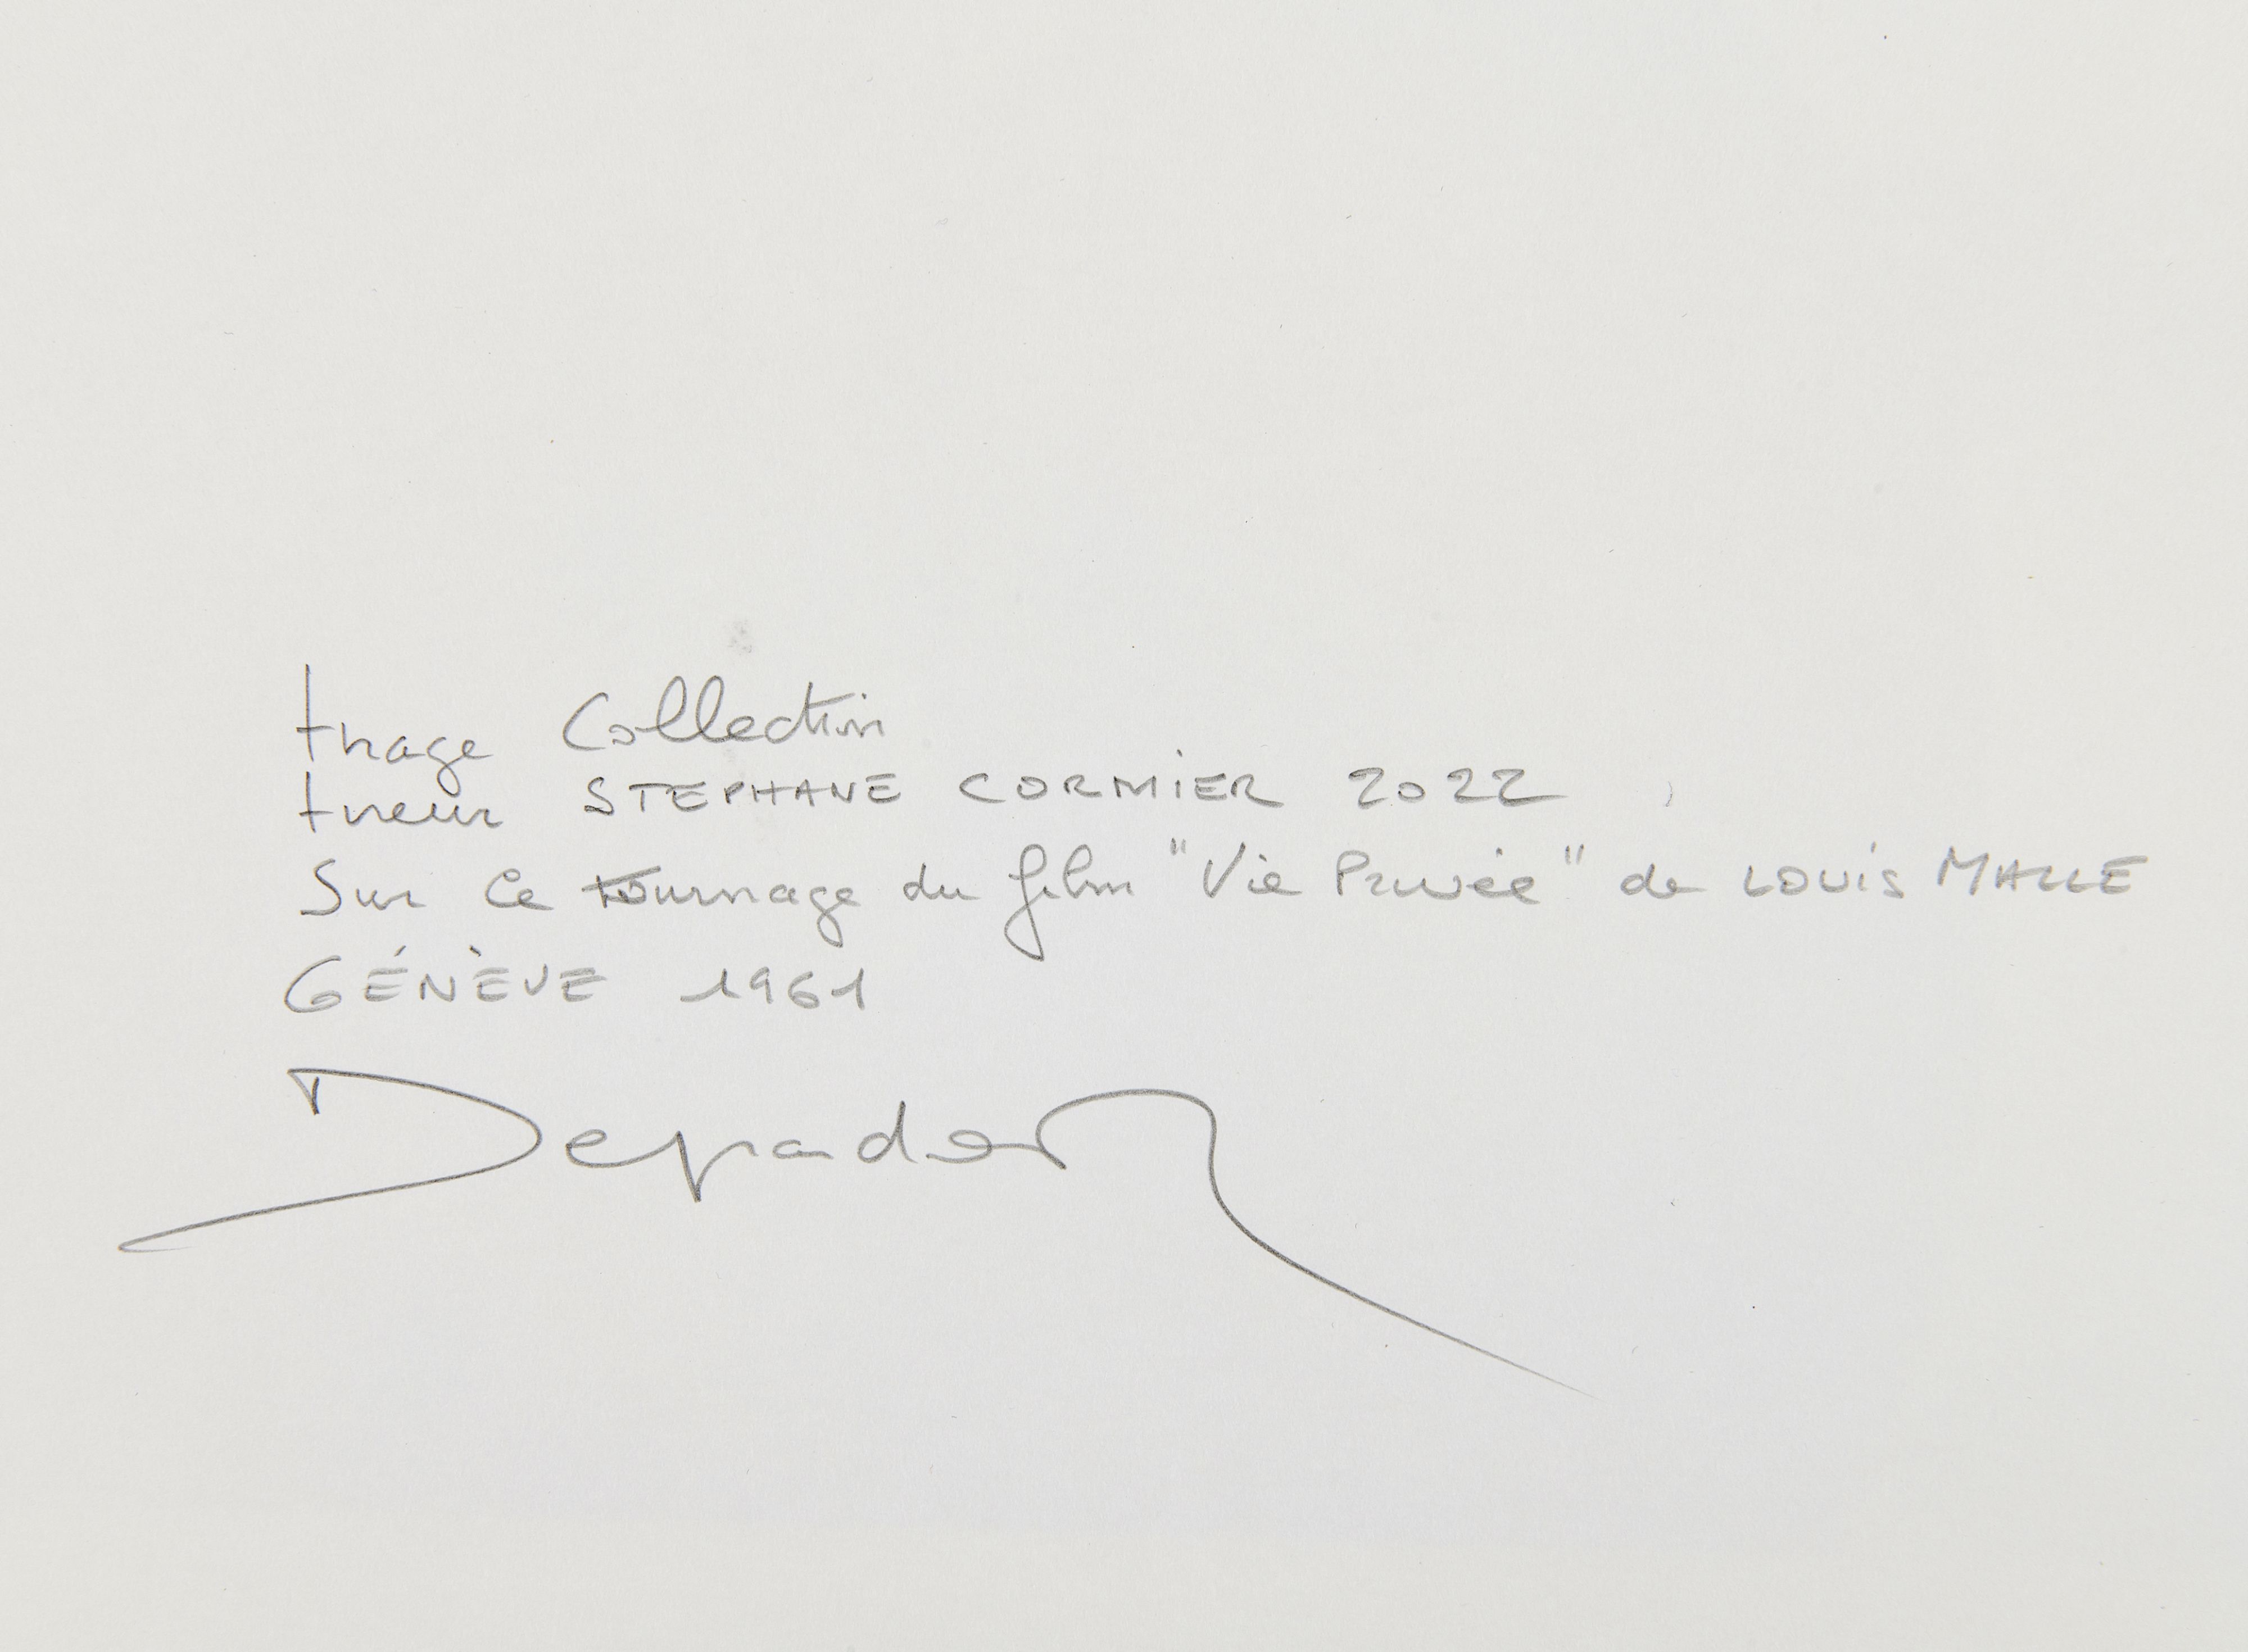 tirage Collection
tireur STEPHANE CORMIER 2022
Sur le tournage du film "Vie Privée" de LOUIS MALLE
GÉNÈVE 1961
Depardon